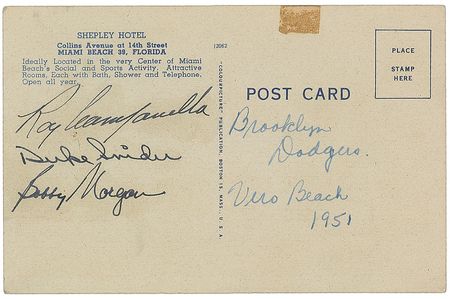 SHEPLEY HOTEL
Collins Avenue at 14th Street
MIAMI BEACH 39, FLORIDA
Ideally Located in the very Center of Miami
Beach's Social and Sports Activity. Attractive
Rooms, Each with Bath, Shower and Telephone.
Open all year.
12062
Roy Campanella
Duke Snider
Bobby Morgan
"COLOURPICTURE" PUBLICATION, BOSTON 15, MASS., U.S.A.
POST CARD
PLACE
STAMP
HERE
Brooklyn
Dodgers.
Vero Beach
1951